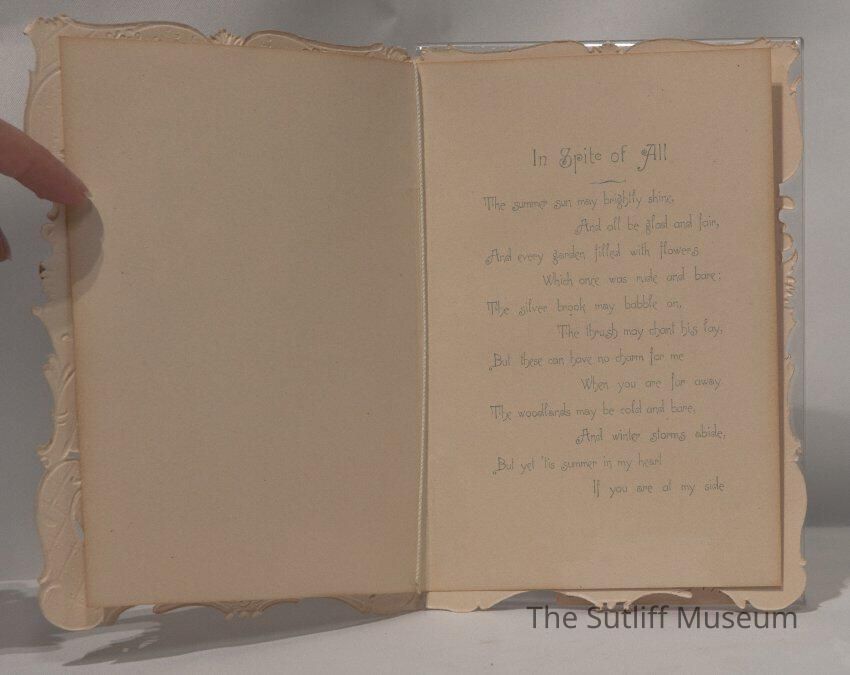 In Spite of All
The summer sun may brightly shine,
And all be glad and fair,
And every garden filled with flowers
Which once was rude and bare:
The silver brook may babble on,
The thrush may chant his lay,
But these can have no charm for me
When you are far away.
The woodlands may be cold and bare,
And winter storms abide,
But yet 'tis summer in my heart
If you are at my side
The Sutliff Museum